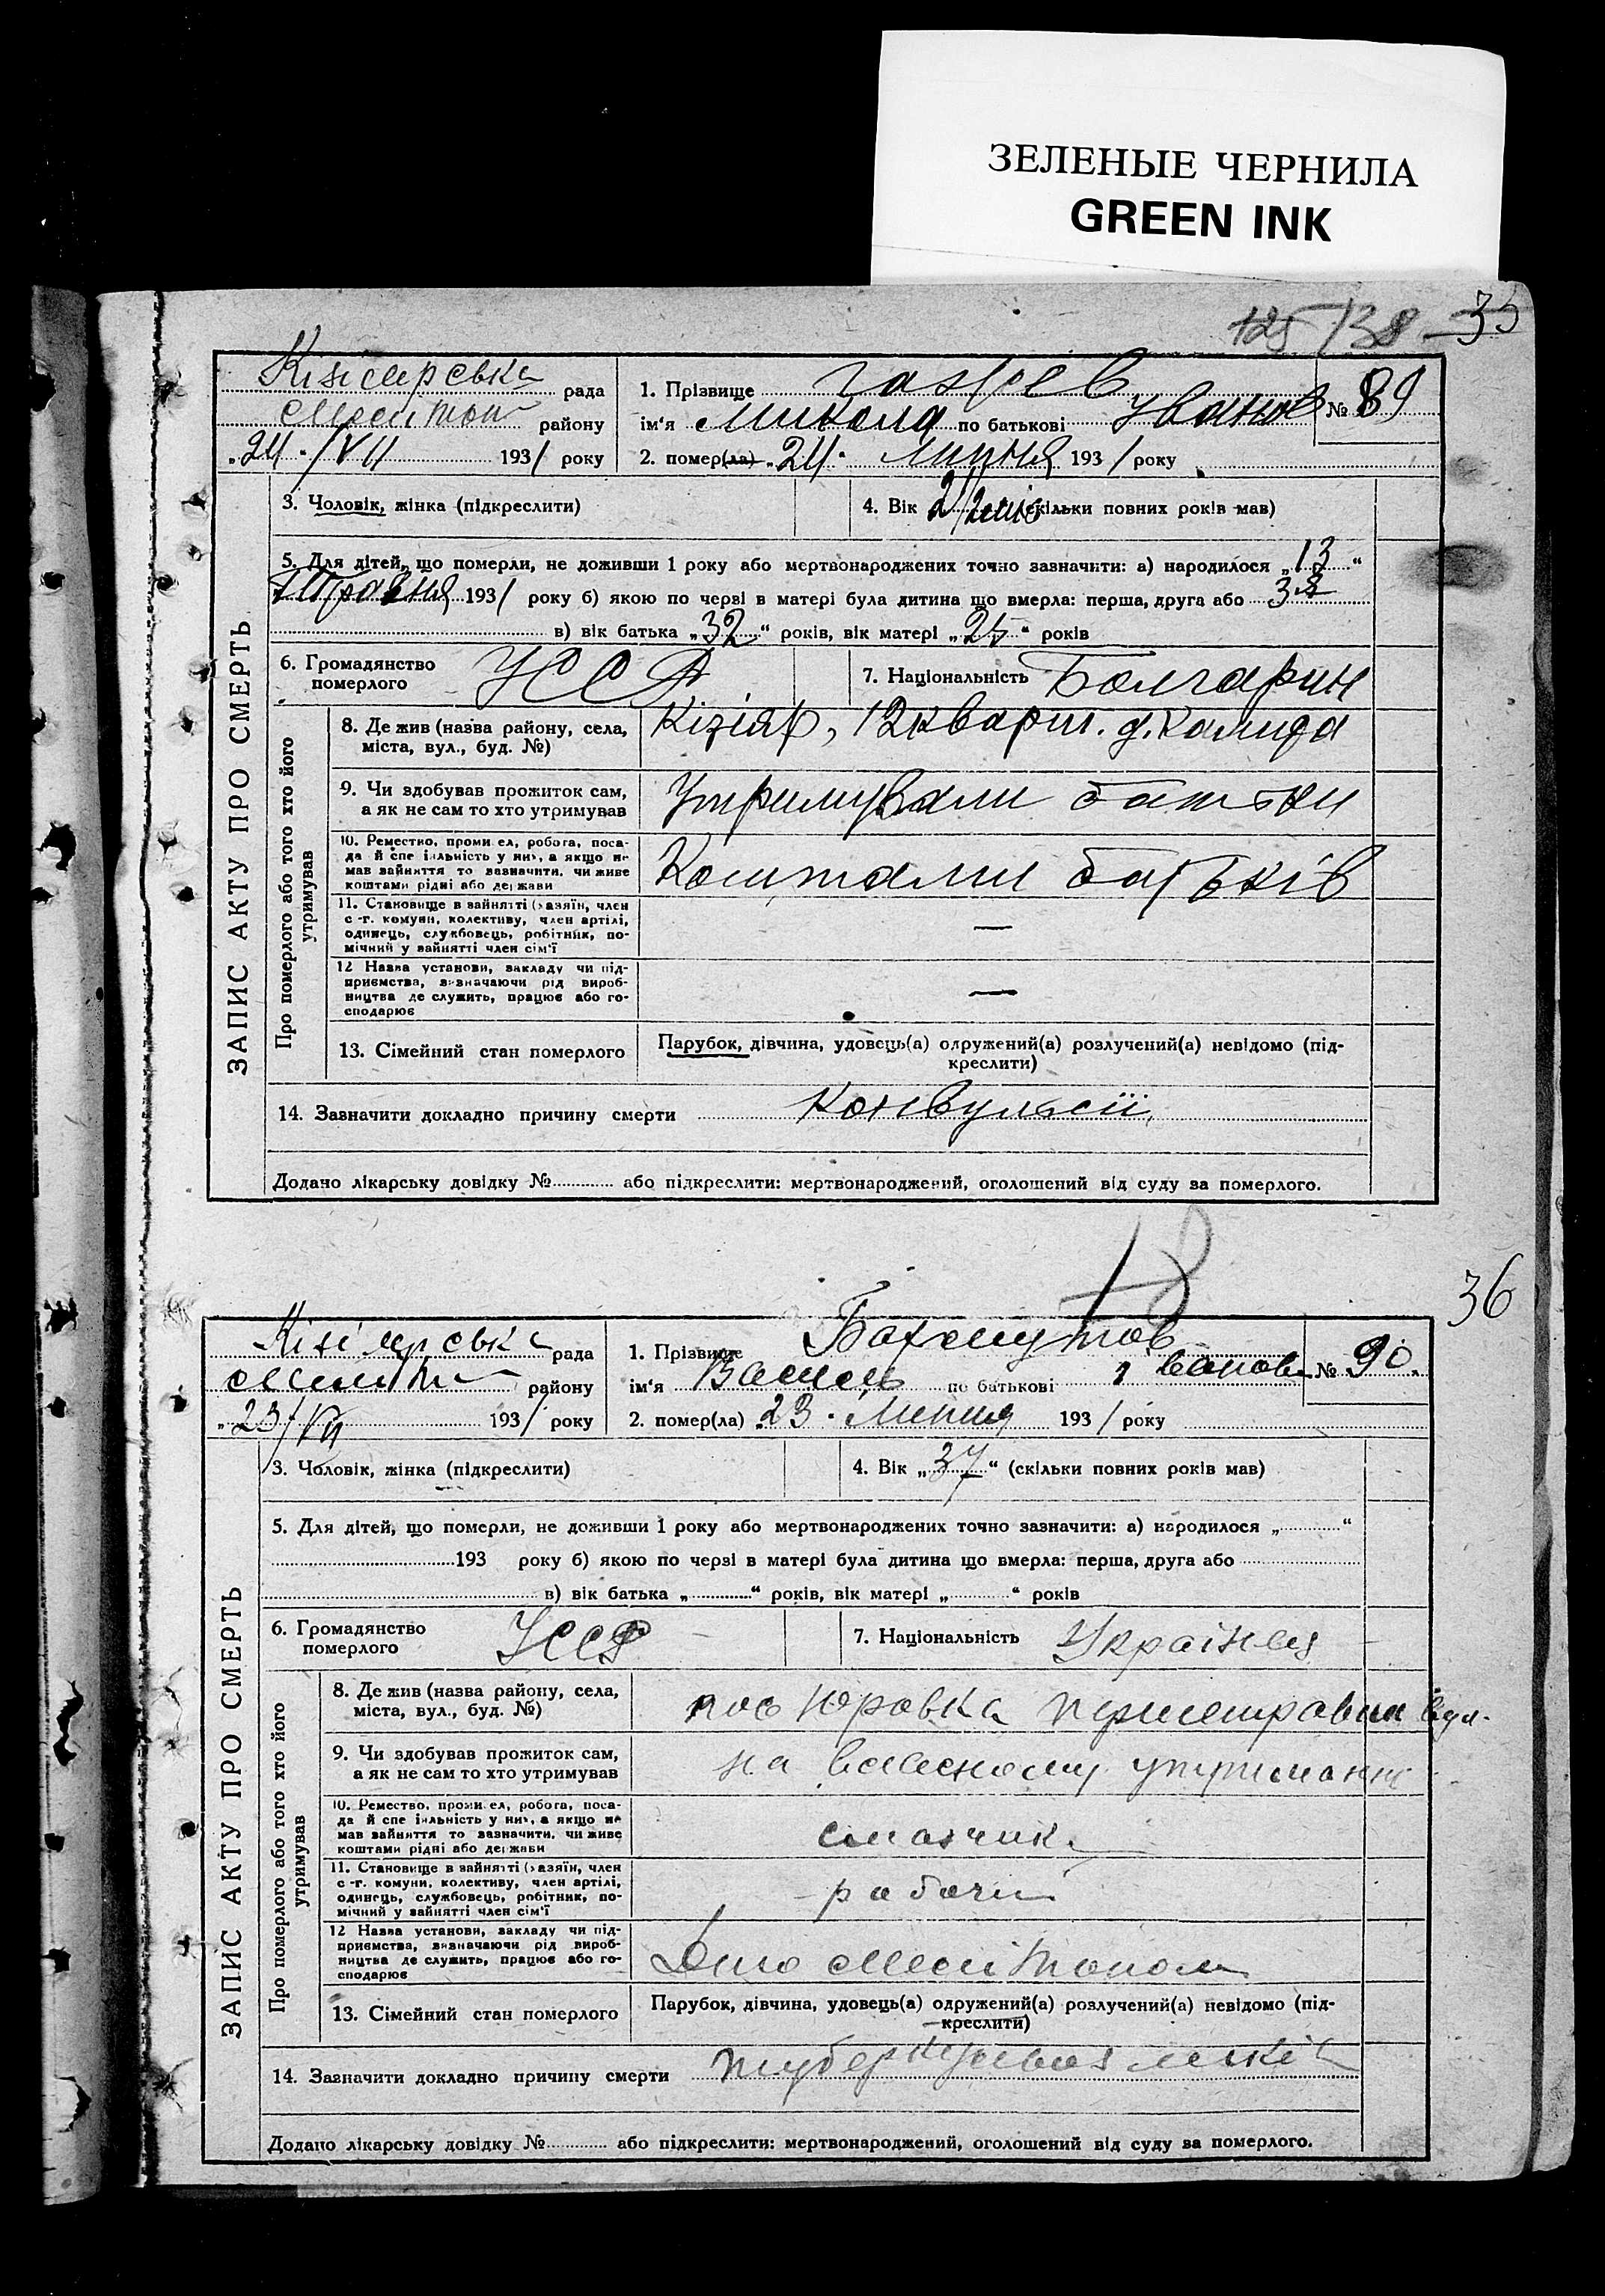 ЗЕЛЕНЫЕ ЧЕРНИЛА
GREEN INK
125 138 35
Кізіярська рада
Мелітоп району
„24/VII 1931 року
1. Прізвище
ім'я Микола по батькові Іванов № 89
2. помер(ла) „24 Липня 1931 року
ЗАПИС АКТУ ПРО СМЕРТЬ
3. Чоловік, жінка (підкреслити)
4. Вік 2 1/2 міс (скільки повних років мав)
5. Для дітей, що померли, не доживши 1 року або мертвонароджених точно зазначити: а) народилося „13“
Травня 1931 року б) якою по черзі в матері була дитина що вмерла: перша, друга або 3-я
в) вік батька „32“ років, вік матері „25“ років
6. Громадянство померлого УССР
7. Національність Болгарин
Про померлого або того хто його утримував
8. Де жив (назва району, села, міста, вул., буд. №) Кізіяр, 12 кварт. д.
9. Чи здобував прожиток сам, а як не сам то хто утримував Утримували батьки
10. Ремество, промисел, робота, посада й спеціяльність у них, а якщо не мав зайняття то зазначити, чи живе коштами рідні або держави Коштами батьків
11. Становище в зайнятті (хазяїн, член с.-г. комуни, колективу, член артілі, одинець, службовець, робітник, помічний у зайнятті член сім'ї —
12 Назва установи, закладу чи підприємства, визначаючи рід виробництва де служить, працює або господарює —
13. Сімейний стан померлого Парубок, дівчина, удовець(а) одружений(а) розлучений(а) невідомо (підкреслити)
14. Зазначити докладно причину смерти Конвульсії
Додано лікарську довідку № або підкреслити: мертвонароджений, оголошений від суду за померлого.
36
Кізіярська рада
Меліто району
„23/VII 1931 року
1. Прізвище Бахмутов
ім'я Василь по батькові Іванов № 90.
2. помер(ла) 23 Липня 1931 року
ЗАПИС АКТУ ПРО СМЕРТЬ
3. Чоловік, жінка (підкреслити)
4. Вік „37“ (скільки повних років мав)
5. Для дітей, що померли, не доживши 1 року або мертвонароджених точно зазначити: а) народилося „ “
193 року б) якою по черзі в матері була дитина що вмерла: перша, друга або
в) вік батька „ “ років, вік матері „ “ років
6. Громадянство померлого УССР
7. Національність
Про померлого або того хто його утримував
8. Де жив (назва району, села, міста, вул., буд. №) пос Юровка вул.
9. Чи здобував прожиток сам, а як не сам то хто утримував на власному утриманні
10. Ремество, промисел, робота, посада й спеціяльність у них, а якщо не мав зайняття то зазначити, чи живе коштами рідні або держави смазчик
11. Становище в зайнятті (хазяїн, член с.-г. комуни, колективу, член артілі, одинець, службовець, робітник, помічний у зайнятті член сім'ї рабочий
12 Назва установи, закладу чи підприємства, визначаючи рід виробництва де служить, працює або господарює Депо Мелитополь
13. Сімейний стан померлого Парубок, дівчина, удовець(а) одружений(а) розлучений(а) невідомо (підкреслити)
14. Зазначити докладно причину смерти туберкульоз легкіх
Додано лікарську довідку № або підкреслити: мертвонароджений, оголошений від суду за померлого.